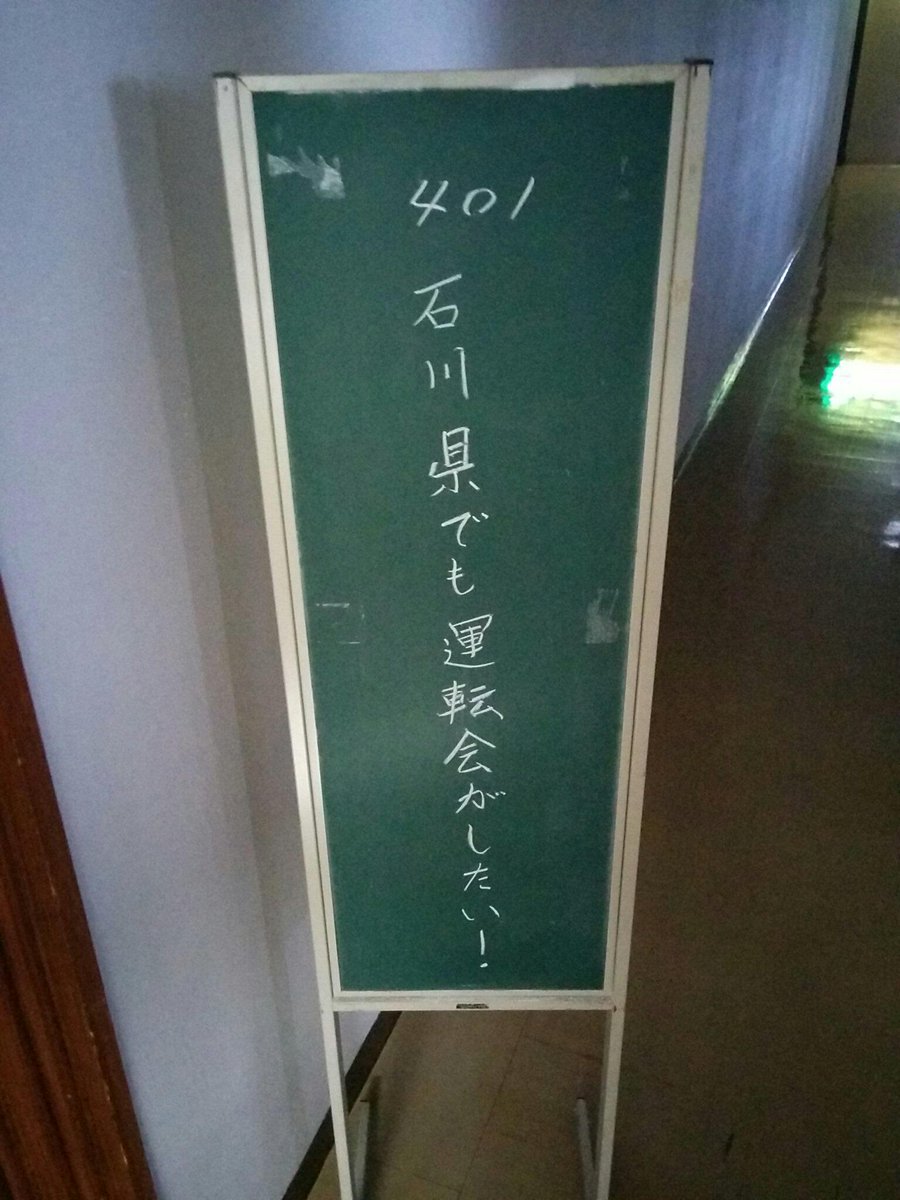 401
石川県でも運転会がしたい!